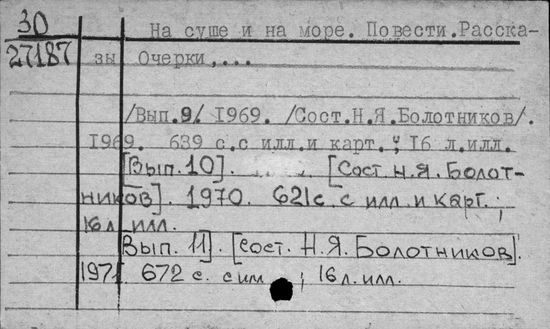 30 На суше и на море. Повести.Расска-
27187 зы Очерки,...
/Вып.9/. 1969. /Сост.Н.Я.Болотников/.
1969. 639 с.с илл.и карт. ; 16 л.илл.
[Вып. 10]. [Сост. Н.Я. Болот-
ников]. 1970. 621с. с илл. и карт. ;
16 л. илл.
[Вып. 11]. [Сост. Н.Я. Болотников].
1971. 672 с. с илл ; 16 л. илл.